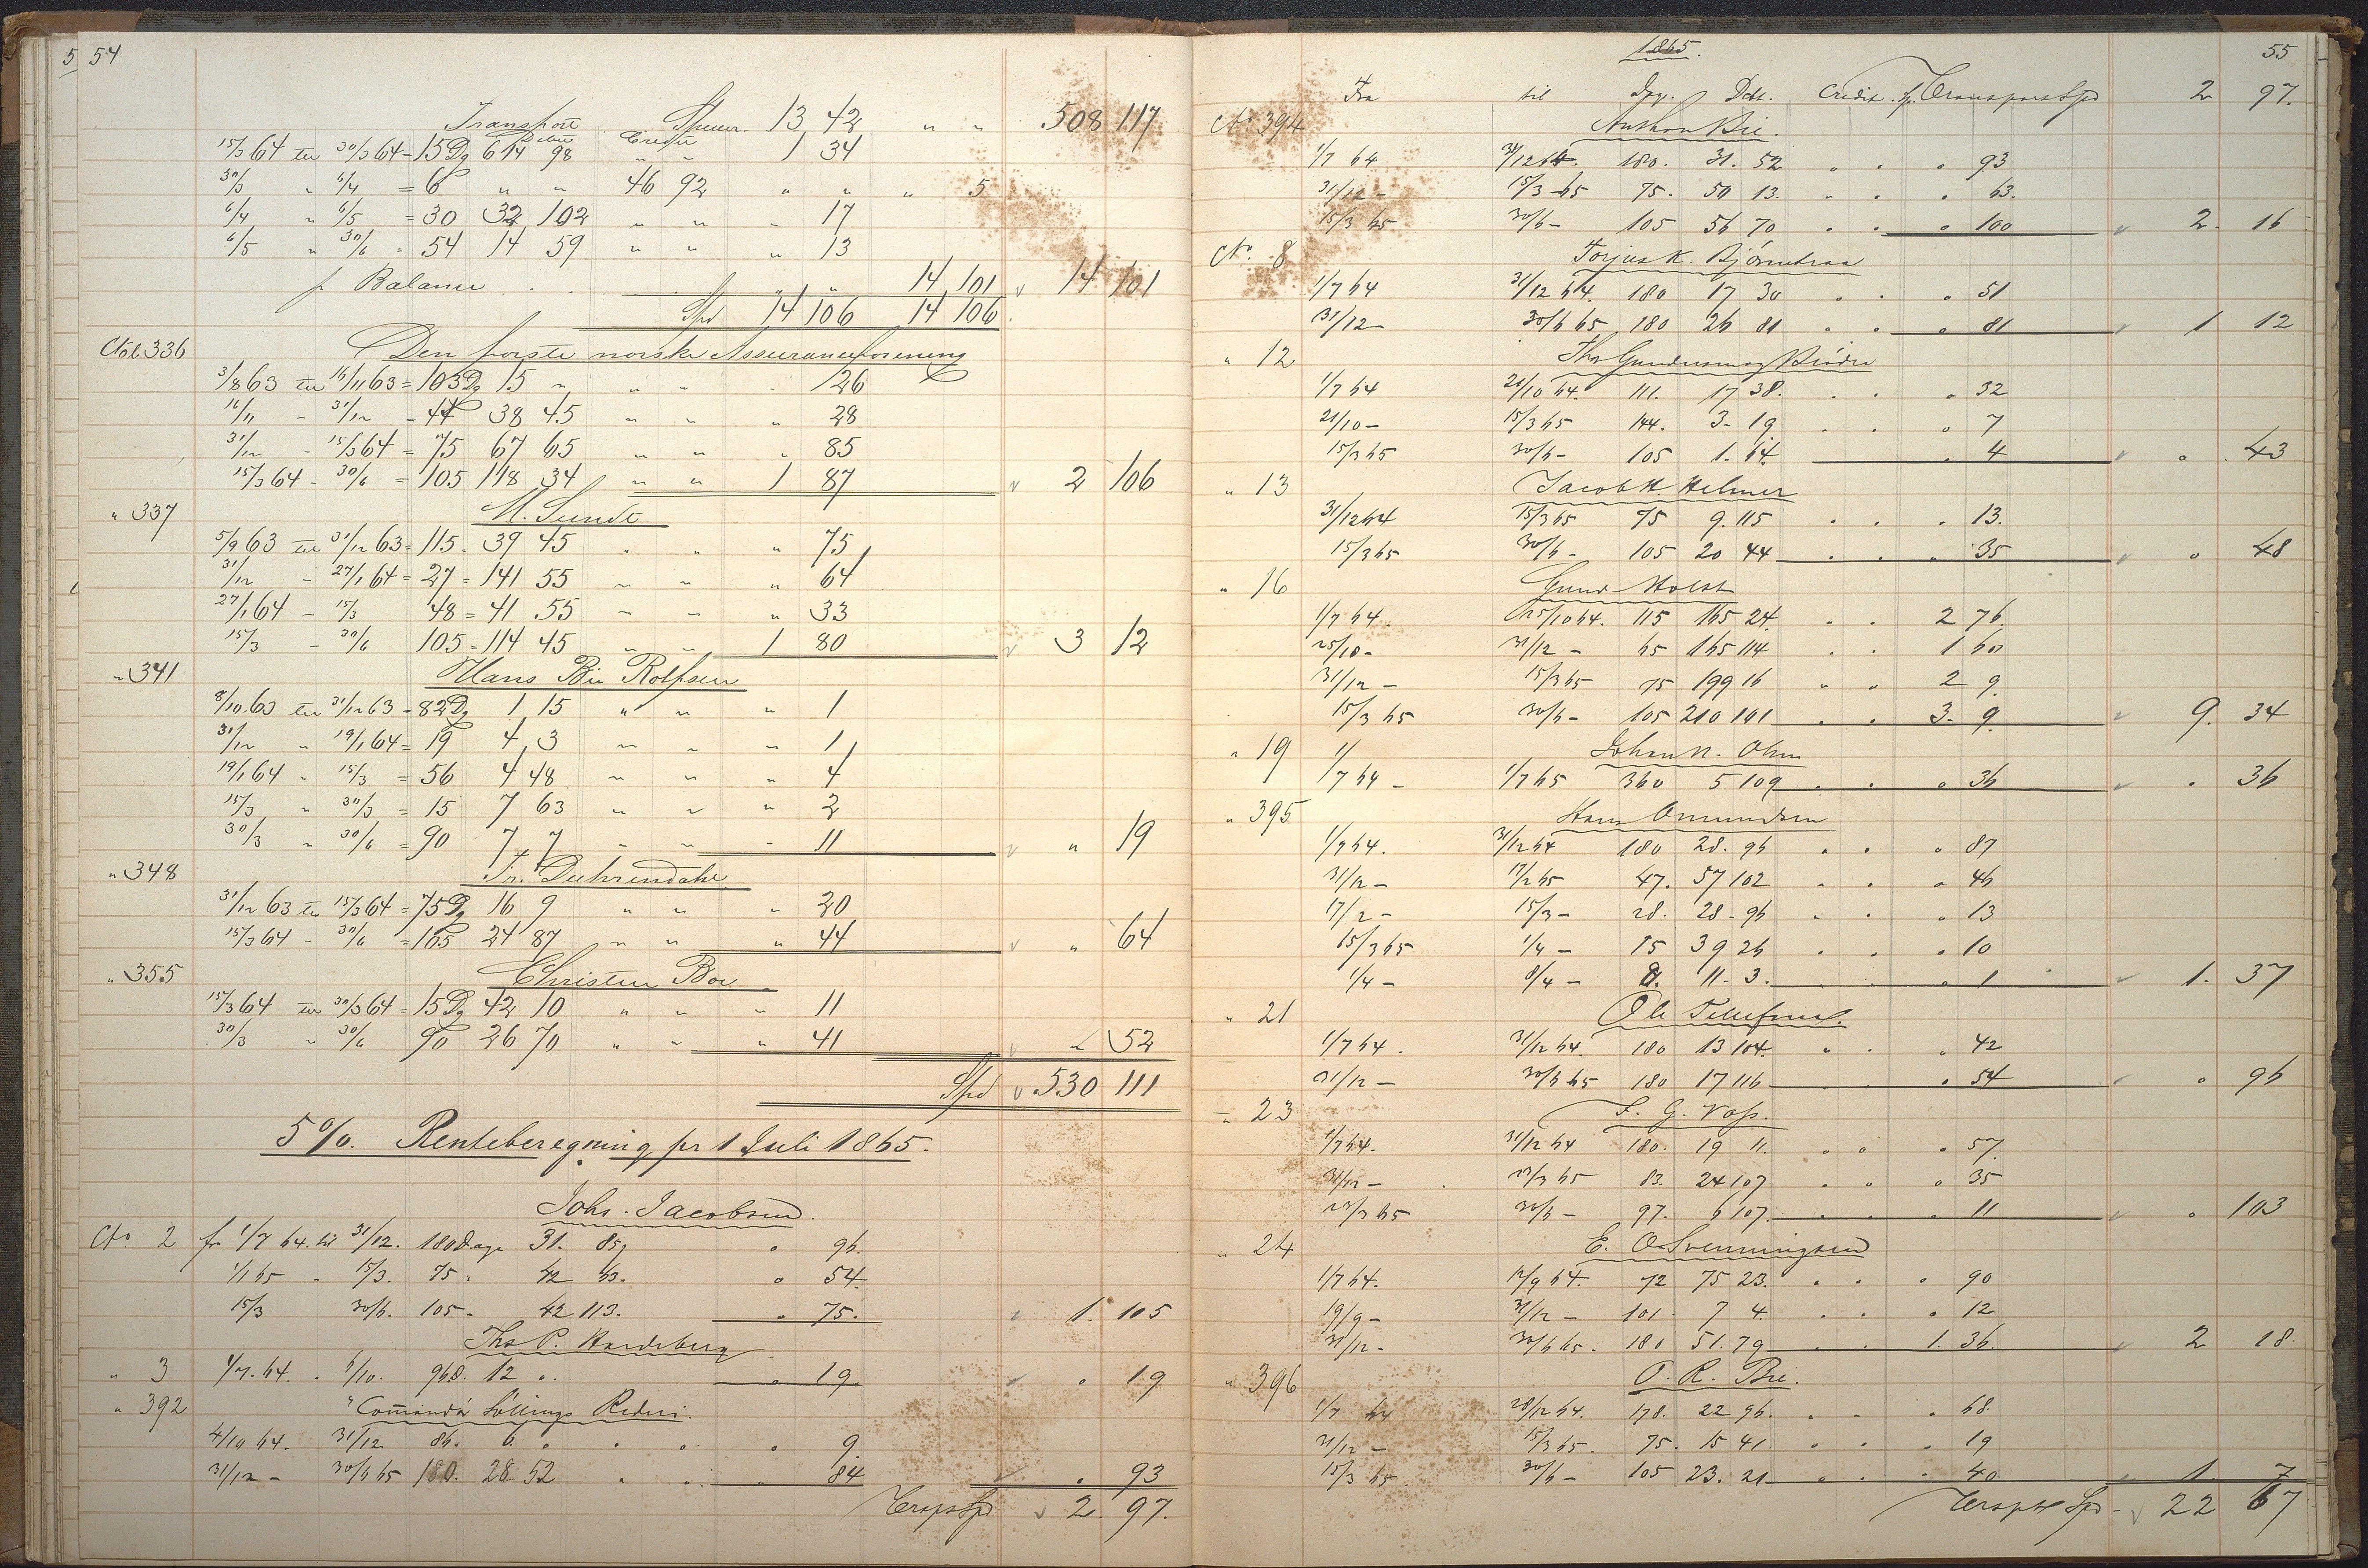 5 54
Transport Spucer. 13 42 " " 508 117
Debet Credit
15/3 64 til 30/3 64 = 15 Dg 614 98 " " 1 34
30/3 " 6/4 = 6 " " 46 92 " " " 5
6/4 " 6/5 = 30 32 102 " " " 17
6/5 " 30/6 = 54 14 59 " " " 13
pr Balance 14 101 14 101
Spd 14 106 14 106
Cto 336 Den første norske Assuranceforening
3/8 63 til 16/11 63 = 103 Dg 15 " " " 126
16/11 - 31/12 = 44 38 45 " " " 28
31/12 - 15/3 64 = 75 67 65 " " " 85
15/3 64 - 30/6 = 105 118 34 " " 1 87 2 106
" 337 M. Sunde
5/9 63 til 31/12 63 = 115 39 45 " " " 75
31/12 - 27/1 64 = 27 = 141 55 " " " 64
27/1 64 - 15/3 48 = 41 55 " " " 33
15/3 - 30/6 105 = 114 45 " " 1 80 3 12
" 341 Hans Bie Rolfsen
8/10 63 til 31/12 63 = 82 Dg 1 15 " " " 1
31/12 " 19/1 64 = 19 4 3 " " " 1
19/1 64 " 15/3 = 56 4 48 " " " 4
15/3 " 30/3 = 15 7 63 " " " 2
30/3 " 30/6 = 90 7 7 " " " 11 " 19
" 348 Fr. Duhrendahl
31/12 63 til 15/3 64 = 75 Dg 16 9 " " " 20
15/3 64 - 30/6 = 105 24 87 " " " 44 " 64
" 355 Christen Boe
15/3 64 til 30/3 64 = 15 Dg 42 10 " " " 11
30/3 " 30/6 90 26 70 " " " 41 " 52
Spd 530 111
5 %. Renteberegning pr 1 Juli 1865.
Johs. Jacobsen.
Cto 2 fr 1/7 64. til 31/12. 180 Dage 31. 85 " 96.
1/1 65 " 15/3. 75 " 42 63. " 54.
15/3 30/6. 105 - 42 113. " 75. 1. 105
Ths P. Hardeberg
" 3 1/7. 64. " 6/10. 96 D. 12 " " 19 " 19
" 392 Comandør Söllings Rederi.
4/10 64. 31/12 86. 6. " " " " 9
31/12 - 30/6 65 180. 28 52 " " " 84 " 93
Transp Spd 2. 97.
1865. 55
Fra til Dag. Debt. Credit. Transport Spd 2 97.
Cto 394 Anthon Bie.
1/7 64 31/12 64. 180. 31. 52 " " " 93
31/12 - 15/3 65 75. 50 13. " " " 63.
15/3 65 30/6 - 105 56 70 " " " 100 2. 16
Cto. 8 Torjus K. Bjørnebraa
1/7 64 31/12 64. 180 17 30 " " " 51
31/12 - 30/6 65 180 26 81 " " " 81 1 12
" 12 Ths Gundersen og Brødre
1/7 64 21/10 64. 111. 17 38. " " " 32
21/10 - 15/3 65 144. 3 - 19 " " " 7
15/3 65 30/6 - 105 1. 64. " 4 " 43
" 13 Jacob H. Helmer
31/12 64 15/3 65 75 9. 115 " " " 13.
15/3 65 30/6 - 105 20 44 " " " 35 " 48
" 16 Gund Holst
1/7 64. 25/10 64. 115 165 24. " " 2 76.
25/10 - 31/12 - 65 165 114 " " 1 60
31/12 - 15/3 65 75 199 16 " " 2 9.
15/3 65 30/6 - 105 210 101 " " 3. 9. 9. 34
" 19 Johan N. Ohm
1/7 64 - 1/7 65 360 5 109 " " " 36 " 36
" 395 Hans Omundsen
1/7 64. 31/12 64 180 28. 96 " " " 87
31/12 - 17/2 65 47. 57 102 " " " 46
17/2 - 15/3 - 28. 28 - 96 " " " 13
15/3 65 1/4 - 15 39 26 " " " 10
1/4 - 8/4 - 8. 11 - 3. " " " 1 1. 37
" 21 Ole Tellefsen.
1/7 64. 31/12 64. 180 13 104. " " " 42
31/12 - 30/6 65 180 17 116 " 54 " 96
" 23 F. G. Voss.
1/7 64. 31/12 64 180. 19 11. " " " 57.
31/12 - 23/3 65 83. 24 107 " " " 35
23/3 65 30/6 - 97. 6 107. " " " 11 " 103
" 24 E. O. Svenningsen
1/7 64. 12/9 64. 72 75 23. " " " 90
19/9 - 31/12 - 101. 7 4. " " " 12
31/12 - 30/6 65. 180 51. 79 " " 1. 36. 2 18.
" 396 O. R. Bie.
1/7 64 28/12 64. 178. 22 96. " " " 68.
31/12 - 15/3 65. 75. 15 41 " " " 19
15/3 65. 30/6 - 105 23. 21 " " " 40 1. 7
Transpt Spd 22 67